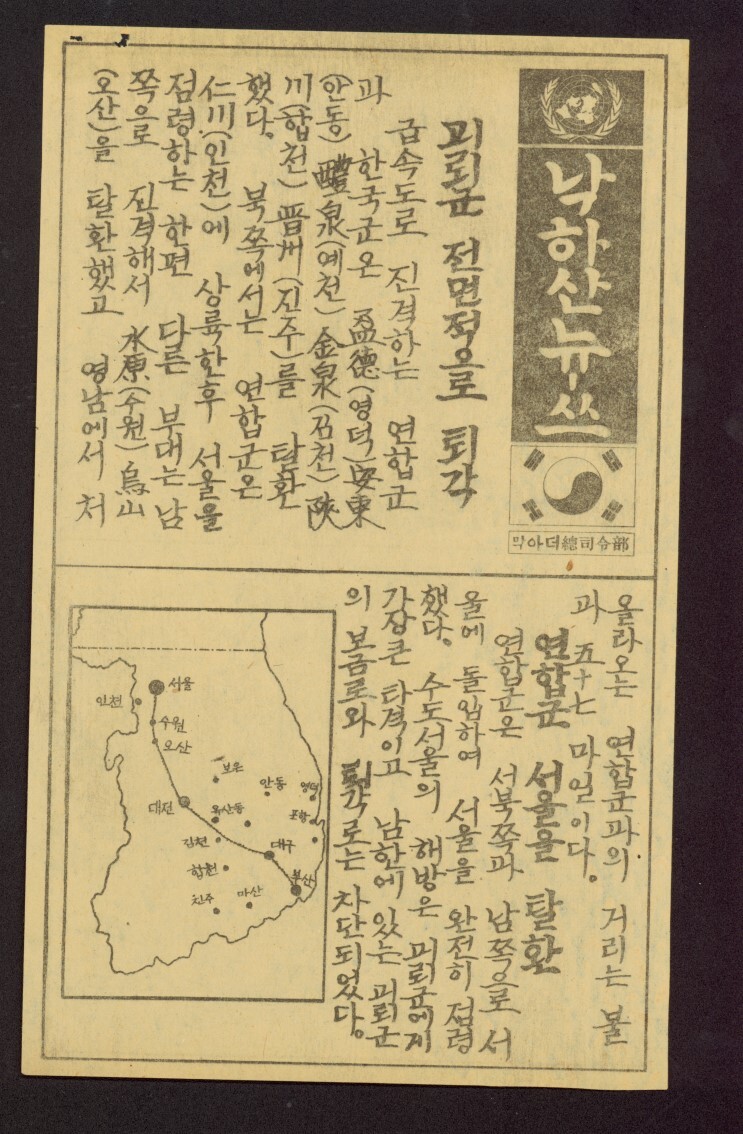 낙하산뉴-쓰
막아더總司令部
괴뢰군 전면적으로 퇴각
급속도로 진격하는 연합군
과 한국군은 盈德(영덕)安東
(안동) 醴泉(예천) 金泉(김천) 陜
川(합천) 晋州(진주)를 탈환
했다. 북쪽에서는 연합군은
仁川(인천)에 상륙한후 서울을
점령하는 한편 다른 부대는 남
쪽으로 진격해서 水原(수원) 烏山
(오산)을 탈환했고 영남에서 처
올라오는 연합군과의 거리는 불
과 五十七 마일이다.
연합군 서울을 탈환
연합군은 서북쪽과 남쪽으로 서
울에 돌입하여 서울을 완전히 점령
했다. 수도서울의 해방은 괴뢰군에게
가장큰 타격이고 남한에 있는 괴뢰군
의 보급로와 퇴각로는 차단되었다.
서울
인천
수원
오산
보은
안동
영덕
대전
포항
김천
대구
합천
부산
진주
마산